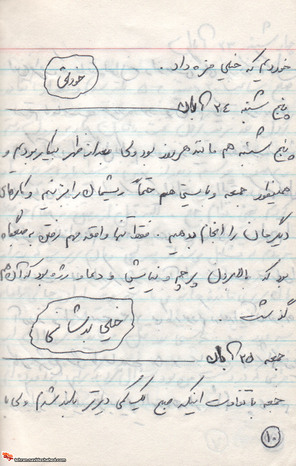 خوردیم که خیلی مزه داد.
خودکی
پنج شنبه ۲۴ آبان
پنج شنبه هم مانند هر روز بود ولی بعد از ظهر بیکار بودیم و
همینطور جمعه و بایستی هم حتماً ریشمان را بزنیم و کارهای
دیگرمان را انجام بدهیم. فقط تنها واقعه مهم رفتن به صبحگاه
بود که بالا بردن پرچم و نیایش و دعا و رژه بود که آن هم
گذشت.
خیلی بدشانسی
جمعه ۲۵ آبان
جمعه با تفاوت اینکه صبح کمی دیرتر بلند شدم ولی با
۱۰
tehran.navideshahed.com